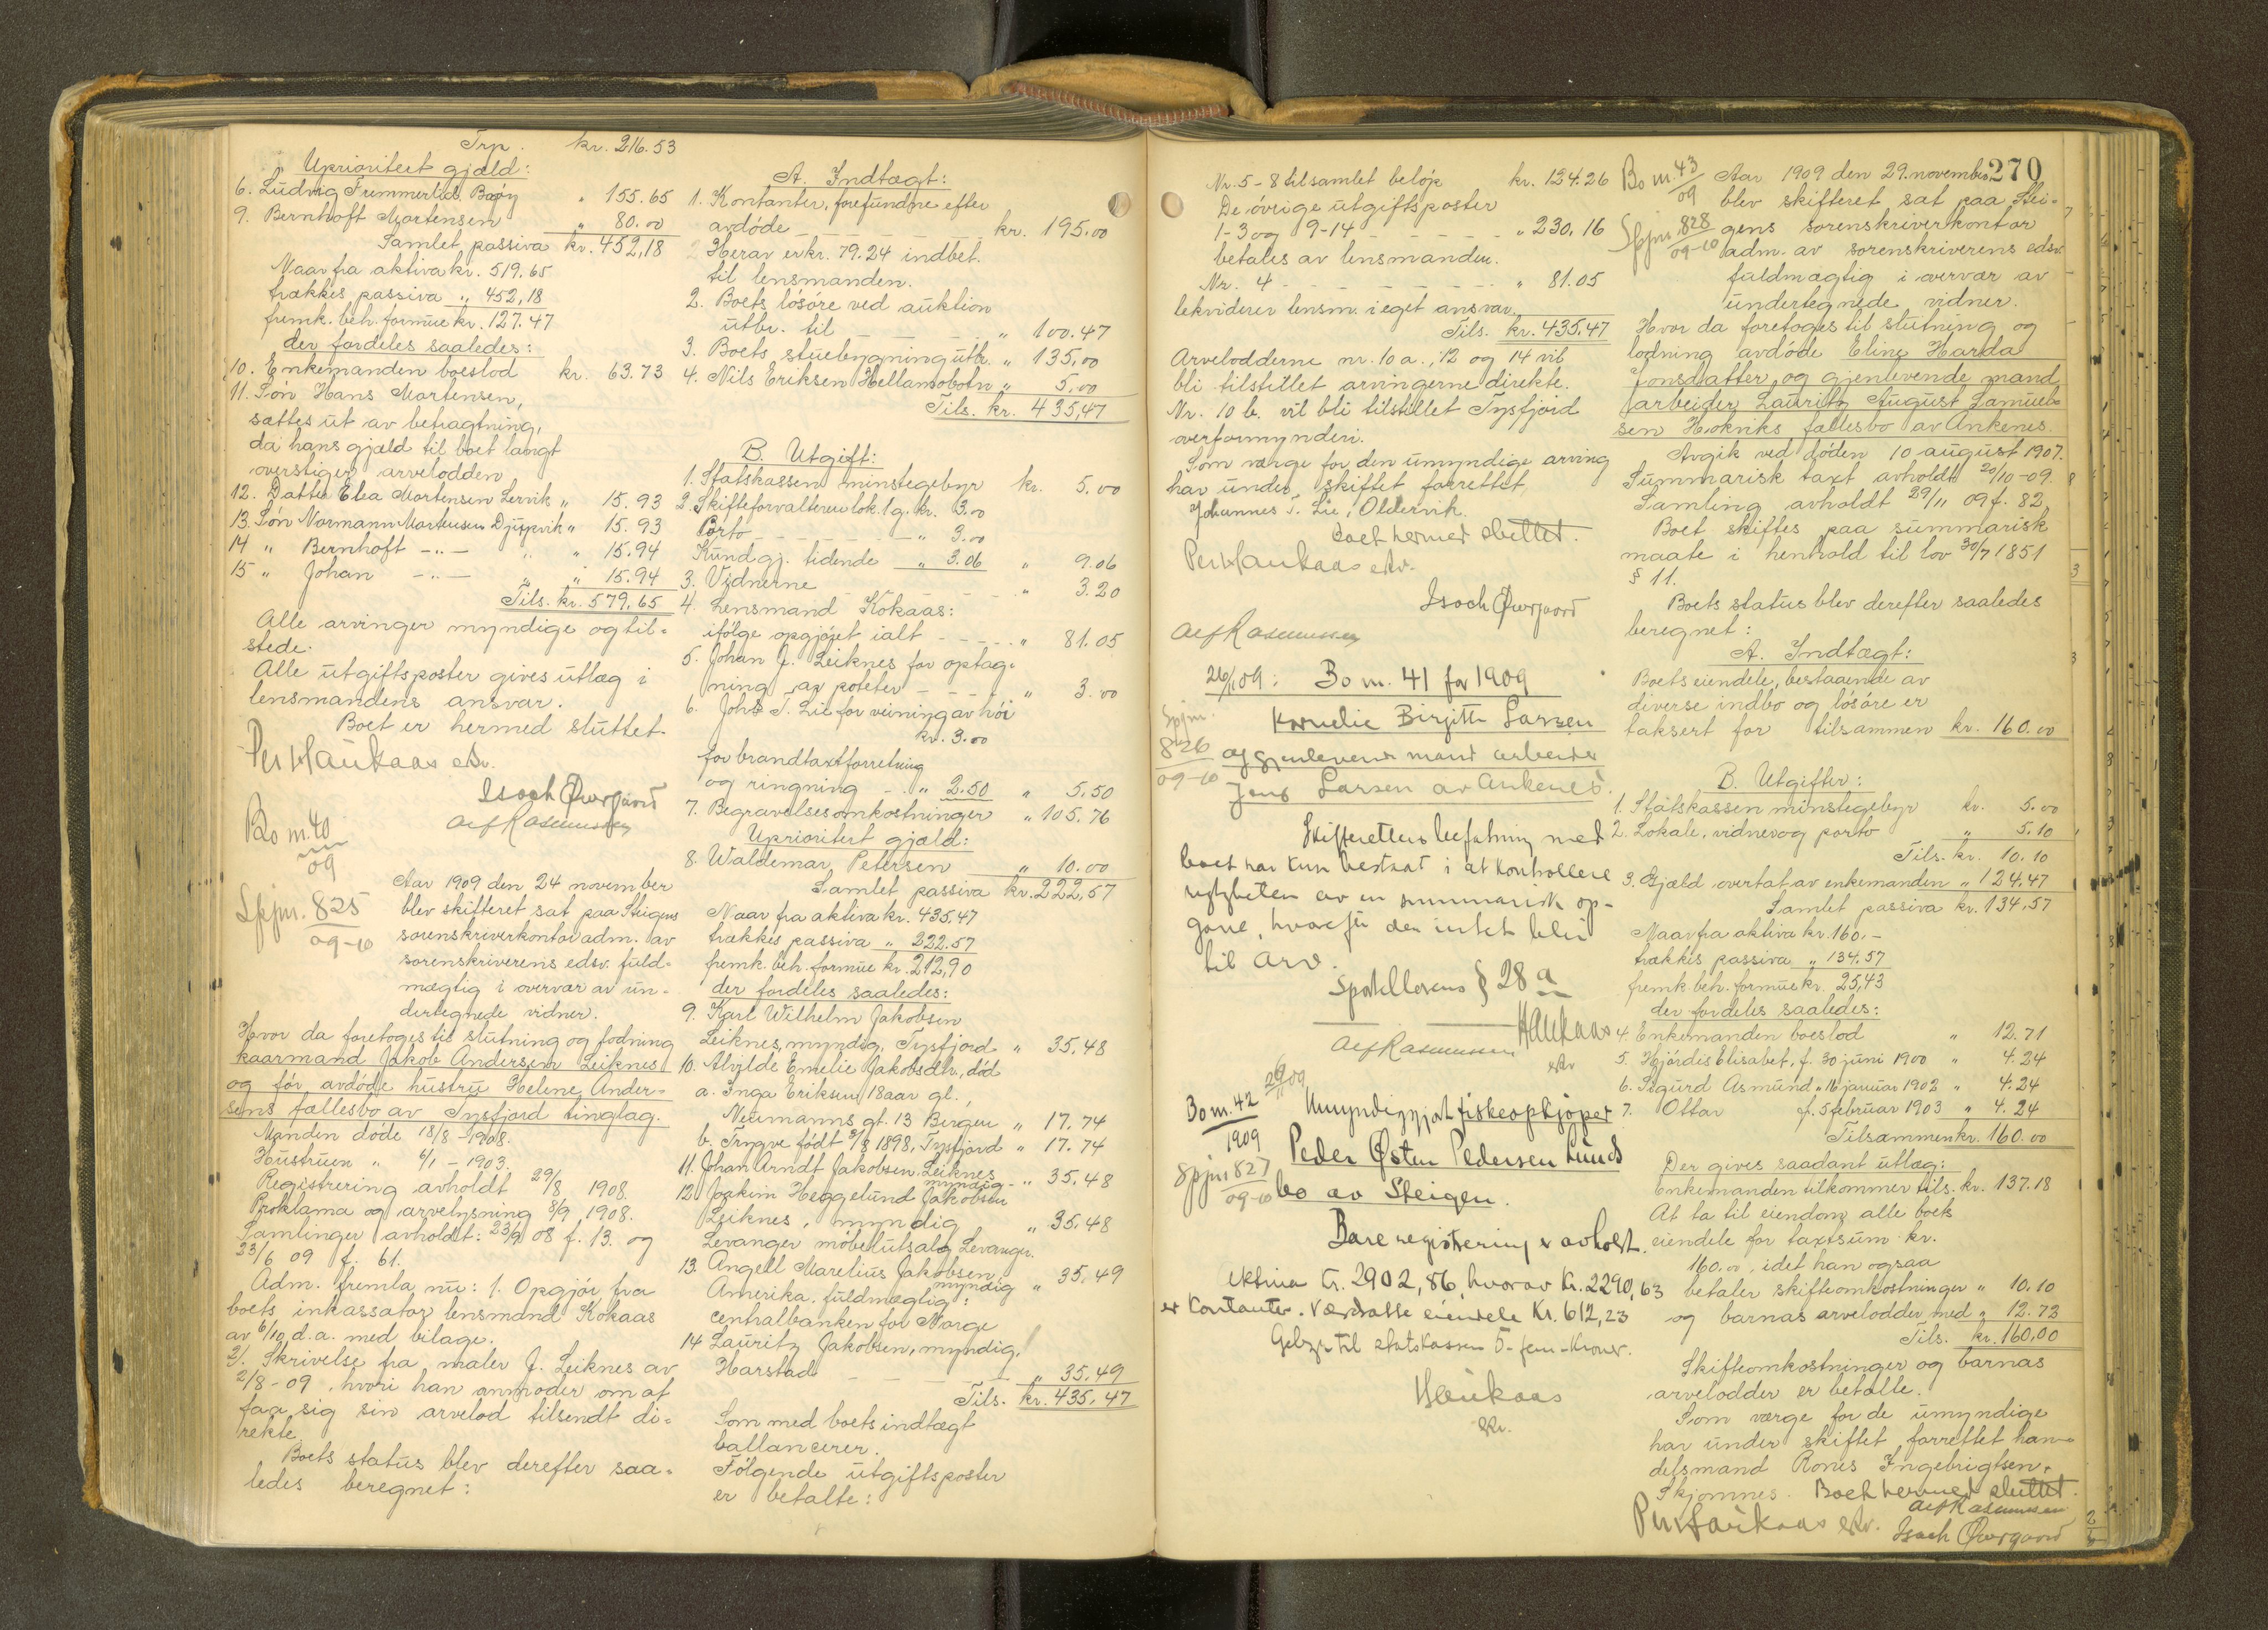 Trp. kr. 216.53
Uprioritert gjæld:
6. Ludvig Trimmerlid Bogøy " 155.65
9. Bernhoft Mortensen " 80.00
Samlet passiva kr. 452,18
Naar fra aktiva kr. 519.65
trækkes passiva " 452,18
fremk. beh. formue kr. 127.47
der fordeles saaledes:
10. Enkemanden boeslod kr. 63.73
11. Søn Hans Mortensen,
sættes ut av betragtning,
da hans gjæld til boet langt
overstiger arvelodden
12. Datter Elea Mortensen Lervik " 15.93
13. Søn Normann Mortensen Djupvik " 15.93
14 " Bernhoft -"- " " 15.94
15 " Johan -"- " " 15.94
Tils. kr. 579.65
Alle arvinger myndige og til-
stede.
Alle utgiftsposter gives utlæg i
lensmandens ansvar.
Boet er hermed sluttet.
Per Haukaas eds.
Isach Øvergaard
Alf Rasmussen
Bo nr. 40
09
Spjnr. 825
09-10
Aar 1909 den 24 november
blev skifteret sat paa Steigens
sorenskriverkontor adm. av
sorenskriverens edsv. fuld-
mægtig i overvær av un-
dertegnede vidner.
Hvor da foretoges til slutning og lodning
kaarmand Jakob Andersen Leiknes
og før avdøde hustru Helene Ander-
sens fællesbo av Tysfjord tinglag.
Manden døde 18/8 - 1908.
Hustruen " 6/1 - 1903.
Registrering avholdt 29/8 1908.
Proklama og arvelysning 8/9 1908.
Samlinger avholdt: 23/9 08 f. 13. og
23/6 09 f. 61.
Adm. fremla nu: 1. Opgjør fra
boets inkassator lensmand Kokaas
av 6/10 d.a. med bilage.
2/. Skrivelse fra maler J. Leiknes av
2/8-09, hvori han anmoder om at
faa sig sin arvelod tilsendt di-
rekte.
Boets status blev derefter saa-
ledes beregnet:
A. Indtægt:
1. Kontanter, forefundne efter
avdøde kr. 195.00
Herav er kr. 79.24 indbet.
til lensmanden.
2. Boets løsøre ved auktion
utbr. til " 100.47
3. Boets stuebygning utbr. " 135,00
4. Nils Eriksen Hellamobotn " 5.00
Tils. kr. 435,47
B. Utgift:
1. Statskassen minstegebyr kr. 5.00
2. Skifteforvalteren lok. 1 g. kr. 3.00
Porto " 3.00
Kundgj. tidende " 3.06 " 9.06
3. Vidnerne " 3.20
4. Lensmand Kokaas:
ifølge opgjøret ialt " 81.05
5. Johan J. Leiknes for optag-
ning av poteter " 3.00
6. Johs T. Lie for veining av høi
kr. 3.00
for brandtaxtforretning
og ringning " 2.50 " 5.50
7. Begravelsesomkostninger " 105.76
Uprioritert gjæld:
8. Waldemar Petersen " 10.00
Samlet passiva kr. 222,57
Naar fra aktiva kr. 435.47
trækkes passiva " 222.57
fremk. beh. formue kr. 212,90
der fordeles saaledes:
9. Karl Wilhelm Jakobsen
Leiknes, myndig, Tysfjord " 35.48
10. Alvilde Emelie Jakobsdtr., død
a. Inga Eriksen, 18 aar gl.,
Neumanns gt. 13 Bergen " 17.74
b. Trygve født 8/8 1898, Tysfjord " 17.74
11. Johan Arndt Jakobsen Leiknes
myndig - " 35.48
12. Joakim Heggelund Jakobsen
Leiknes, myndig " 35.48
Levanger møbelutsalg Levanger.
13. Angell Marelius Jakobsen
myndig " 35.49
Amerika. fuldmægtig:
Centralbanken for Norge
14 Lauritz Jakobsen, myndig,
Harstad " 35.49
Tils. kr. 435.47
Som med boets indtægt
ballancerer.
Følgende utgiftsposter
er betalte:
Nr. 5-8 tilsamlet beløp kr. 124.26
De øvrige utgiftsposter
1-3 og 9-14 " 230.16
betales av lensmanden.
Nr. 4 " 81.05
lekviderer lensm. i eget ansvar
Tils. kr. 435.47
Arvelodderne nr. 10 a., 12 og 14 vil
bli tilstillet arvingerne direkte.
Nr. 10 b. vil bli tilstillet Tysfjord
overformynderi.
Som værge for den umyndige arving
har under skiftet forrettet
Johannes T. Lie, Oldervik.
Boet hermed sluttet.
Per Haukaas eds.
Isach Øvergaard
Alf Rasmussen
26/11 09: Bo nr. 41 for 1909
Spjnr.
826
09-10
Kornelie Birgitte Larsen
og gjenlevende mand arbeider
Jens Larsen av Ankenes.
Skifterettens befatning med
boet har kun bestaat i at kontrollere
rigtigheten av en summarisk op-
gave, hvorefter der intet blir
til arv.
Sportellovens § 28 a
Haukaas
eds.
Alf Rasmussen
Bo nr. 42
1909
Spjnr 827
09-10
29/11 09
Umyndiggjort fiskeopkjøper
Peder Østen Pedersen Lunds
bo av Steigen.
Bare registrering er avholdt.
Aktiva kr. 2902,86, hvorav kr. 2290,63
er kontanter. Værdsatte eiendele kr. 612,23
Gebyr til statskassen 5 - fem - kroner.
Haukaas
eds.
270
Bo nr. 43
09
Spjnr. 828
09-10
Aar 1909 den 29. november
blev skifteret sat paa Stei-
gens sorenskriverkontor
adm. av sorenskriverens edsv.
fuldmægtig i overvær av
undertegnede vidner.
Hvor da foretoges til slutning og
lodning avdøde Eline Harda
Jonsdatter og gjenlevende mand
arbeider Lauritz August Samuel-
sen Hokviks fællesbo av Ankenes.
Avgik ved døden 10 august 1907.
Summarisk taxt avholdt 20/10-09.
Samling avholdt 29/11 09 f. 82.
Boet skiftes paa summarisk
maate i henhold til lov 30/7 1851
§ 11.
Boets status blev derefter saaledes
beregnet:
A. Indtægt:
Boets eiendele, bestaaende av
diverse indbo og løsøre er
taksert for tilsammen kr. 160.00
B. Utgifter:
1. Statskassen minstegebyr kr. 5.00
2. Lokale, vidner og porto " 5.10
Tils. kr. 10.10
3. Gjæld overtat av enkemanden " 124,47
Samlet passiva kr. 134,57
Naar fra aktiva kr. 160.-
trækkes passiva " 134.57
fremk. beh. formue kr. 25,43
der fordeles saaledes:
4. Enkemanden boeslod " 12.71
5. Hjørdis Elisabet, f. 30 juni 1900 " 4.24
6. Sigurd Asmund " 16 januar 1902 " 4.24
7. Ottar f. 5 februar 1903 " 4.24
Tilsammen kr. 160.00
Der gives saadant utlæg:
Enkemanden tilkommer tils. kr. 137.18
At ta til eiendom alle boets
eiendele for taxtsum kr.
160.00, idet han ogsaa
betaler skifteomkostninger " 10.10
og barnas arvelodder med " 12.72
Tils. kr. 160,00
Skifteomkostninger og barnas
arvelodder er betalte.
Som værge for de umyndige
har under skiftet forrettet han-
delsmand Rones Ingebrigtsen,
Skjomnes. Boet hermed sluttet.
Alf Rasmussen
Per Haukaas eds. Isach Øvergaard